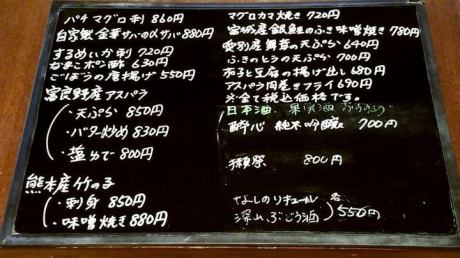 バチマグロ刺 860円
金華サバのメサバ 880円
するめいか刺 720円
なまこポン酢 630円
ごぼうの唐揚げ 550円
富良野産アスパラ
・天ぷら 850円
・バター炒め 830円
・塩ゆで 800円
熊本産竹の子
・刺身 850円
・味噌焼き 880円
マグロカマ焼き 720円
宮城産銀鮭のふき味噌焼き 780円
愛別産 舞茸の天ぷら 640円
ふきのとうの天ぷら 700円
茄子と豆腐の揚げ出し 680円
アスパラ肉巻きフライ 690円
※全て税込価格です。
日本酒 果実酒
酔心 純米吟醸 700円
獺祭 800円
なしのリキュール 各
深山ぶどう酒 550円